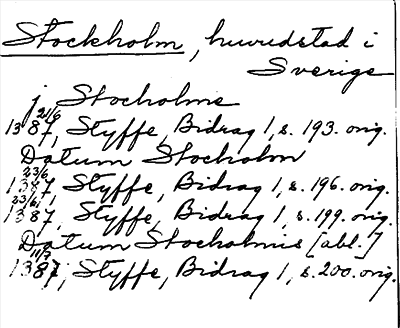 Stockholm, huvudstad i
Sverige
j Stocholme
1387 21/6, Styffe, Bidrag 1, s. 193. orig.
Datum Stockholm
1387 23/6, Styffe, Bidrag 1, s. 196. orig.
1387 23/6, Styffe, Bidrag 1, s. 199. orig.
Datum Stocholmis [abl.]
1387 11/7, Styffe, Bidrag 1, s. 200. orig.